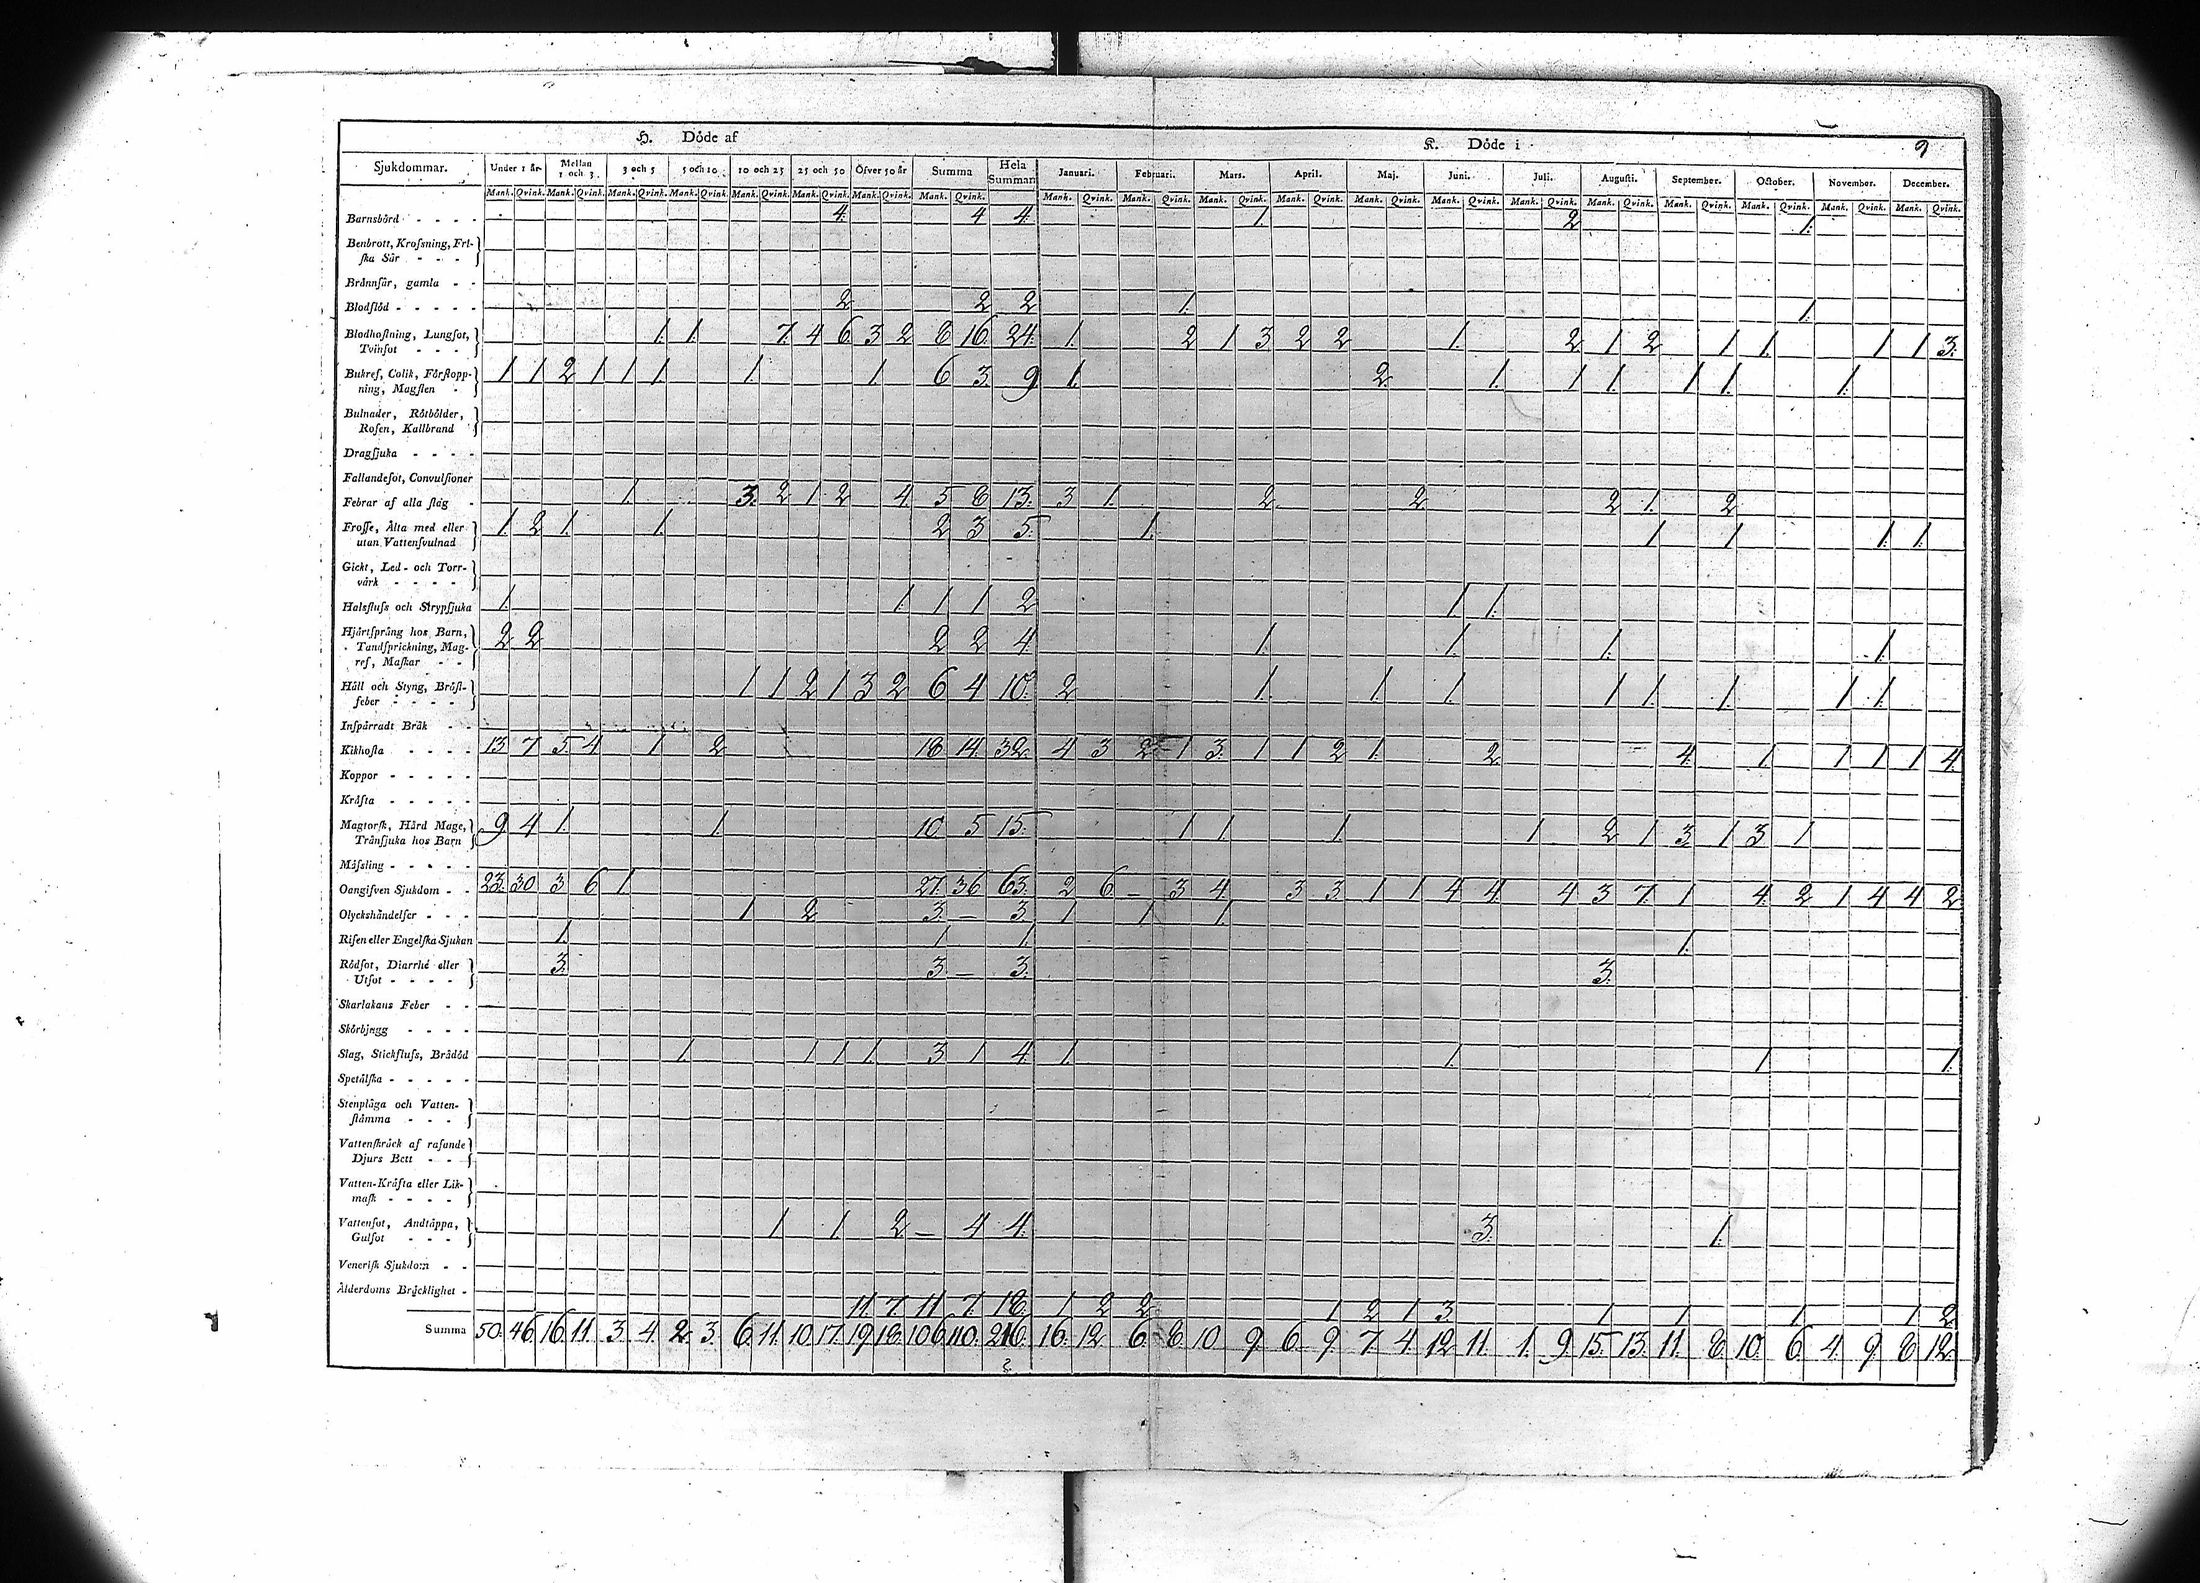 H. Döde af K. Döde i 9
Sjukdommar. Under 1 år Mellan 1 och 3. 3 och 5 5 och 10 10 och 25 25 och 50 Öfver 50 år Summa Hela Summan Januari. Februari. Mars. April. Maj. Juni. Juli. Augusti. September. October. November. December.
Mank. Qvink. Mank. Qvink. Mank. Qvink. Mank. Qvink. Mank. Qvink. Mank. Qvink. Mank. Qvink. Mank. Qvink. Mank. Qvink. Mank. Qvink. Mank. Qvink. Mank. Qvink. Mank. Qvink. Mank. Qvink. Mank. Qvink. Mank. Qvink. Mank. Qvink. Mank. Qvink. Mank. Qvink. Mank. Qvink.
Barnsbörd - - - - 4. 4 4. 1. 2 1.
Benbrott, Krosning, Fri-
ska Sår - - -
Brännsår, gamla - -
Blodflöd - - - - - 2 2 2 1. 1.
Blodhostning, Lungsot,
Tvinsot - - - 1. 1. 7. 4 6. 3 2 8 16. 24. 1. 2 1 3 2 2 1. 2 1 2 1 1. 1 1 3.
Bukref, Colik, Förstopp-
ning, Magsten - 1 1 2 1 1 1. 1. 1. 6 3. 9 1. 2. 1. 1 1. 1 1. 1.
Bulnader, Rötbölder,
Rosen, Kallbrand
Dragsjuka - - - -
Fallandesot, Convulsioner
Febrar af alla slag - 1. 3. 2 1 2 4. 5 8 13. 3 1. 2 2 2 1. 2
Frosse, Älta med eller
utan Vattensvulnad 1. 2 1. 1. 2 3 5. 1. 1 1. 1. 1.
Gickt, Led- och Torr-
värk - - - -
Halsfluss och Strypsjuka 1. 1. 1 1 2 1 1.
Hjärtsprång hos Barn,
Tandsprickning, Mag-
ref, Maskar - - 2 2 2 2 4. 1. 1. 1. 1.
Håll och Styng, Bröst-
feber - - - - 1 1 2 1 3 2 6 4 10. 2 1. 1. 1. 1 1. 1. 1 1.
Inspärradt Bråk - -
Kikhosta - - - - 13. 7 5 4 1 2 18 14. 32. 4 3 2 1 3. 1 1 2 1. 2. 4. 1. 1 1 1 4.
Koppor - - - - -
Kräfta - - - - -
Magtorsk, Hård Mage,
Tränsjuka hos Barn 9 4 1. 1. 10 5 15. 1 1 1. 1 2 1 3 1 3 1
Mässling - - - - -
Oangifven Sjukdom - - 23. 30 3 6 1 27. 36 63. 2 6 - 3 4. 3 3. 1 1 4 4. 4 3 7. 1 4. 2 1 4 4 2.
Olyckshändelser - - - 1 2 3. - 3. 1 1 1.
Risen eller Engelska Sjukan 1. 1 1. 1.
Rödsot, Diarrhé eller
Utsot - - - - 3. 3. - 3. 3.
Skarlakans Feber - -
Skörbjugg - - - -
Slag, Stickfluss, Brådöd 1. 1 1 1. 3 1 4. 1. 1. 1 1.
Spetälska - - - - -
Stenplåga och Vatten-
stämma - - -
Vattenskräck af rasande
Djurs Bett - -
Vatten-Kräfta eller Lik-
mask - - - -
Vattensot, Andtäppa,
Gulsot - - - 1. 1. 2 - 4 4. 3. 1.
Venerisk Sjukdom - -
Ålderdoms Bräcklighet - 11. 7. 11 7. 18. 1 2 2 1 2 1 3 1 1 1 1 2
Summa 50. 46. 16. 11. 3. 4. 2. 3. 6. 11. 10. 17. 19. 18. 106. 110. 216. 16. 12 6. 8. 10 9. 6. 9. 7 4. 12 11. 1. 9 15. 13. 11. 8. 10. 6. 4. 9. 8 12.